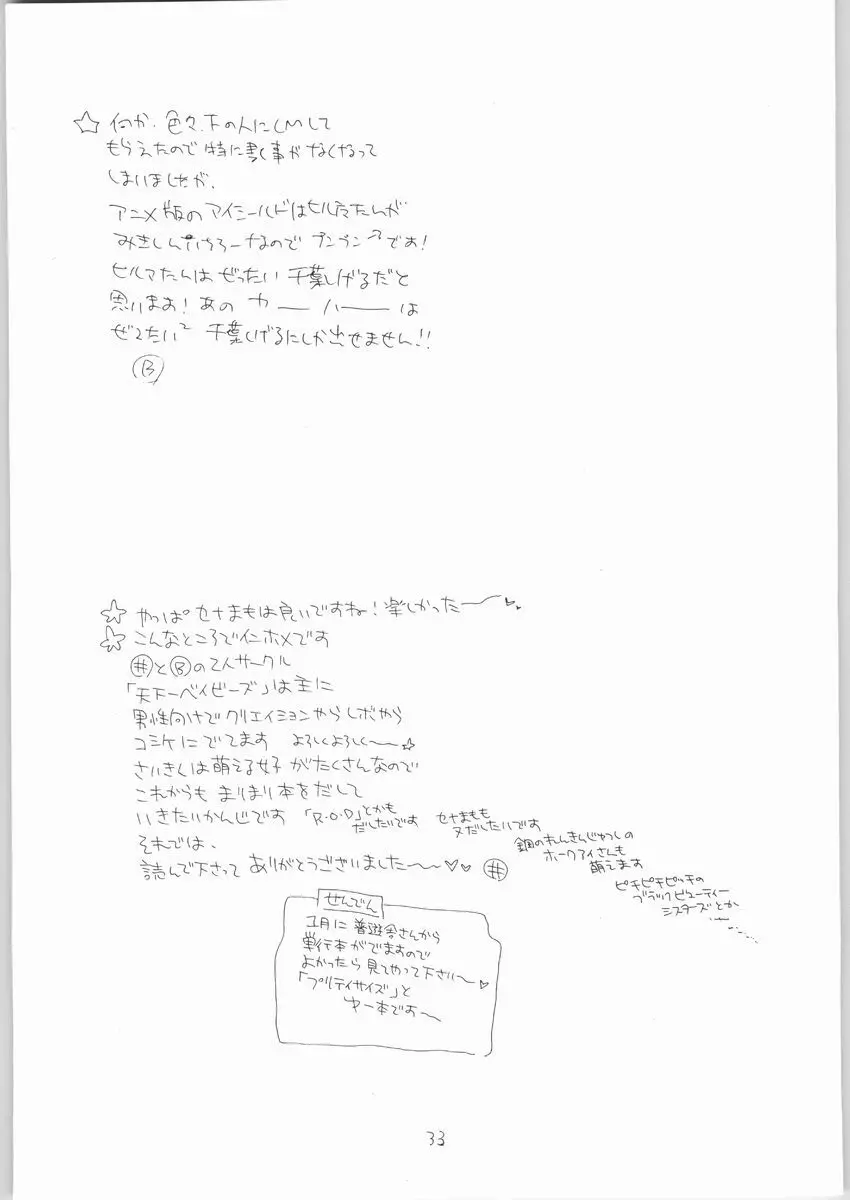 ☆ 何か、色々、下の人にCMして
もらえたので 特に書く事がなくなって
しまいましたが、
アニメ版の アイシールドはヒルマたんが
みきしんいちろーなので プンプンです!
ヒルマたんは ぜったい 千葉しげるだと
思います! あの カーーハーーは
ぜったい² 千葉しげるにしか出せません!!
Ⓑ
☆ やっぱ セナまもは良いですね! 楽しかった〜♥
☆ こんなところでインホメです
㊉とⒷの2人サークル
「天下一ベイビーズ」は主に
男性向けで クリエイションやら レボやら
コミケに でてます よろしくよろしく〜☆
さいきんは萌える女子 がたくさんなので
これからも まりまり本をだして
いきたいかんじです 「R.O.D」とかも
だしたいです
セナまもも
又だしたいです
鋼のれんきんじゅつしの
ホークアイさんも
萌えます
ピチピチピッチの
ブラックビューティー
シスターズとか
それでは、
読んで下さって ありがとうございました〜〜♥♥ #
せんでん
1月に 普遊舎さんから
単行本がでますので
よかったら 見てやって下さい〜♥
「プリティサイズ」と
ゆー本です〜
33